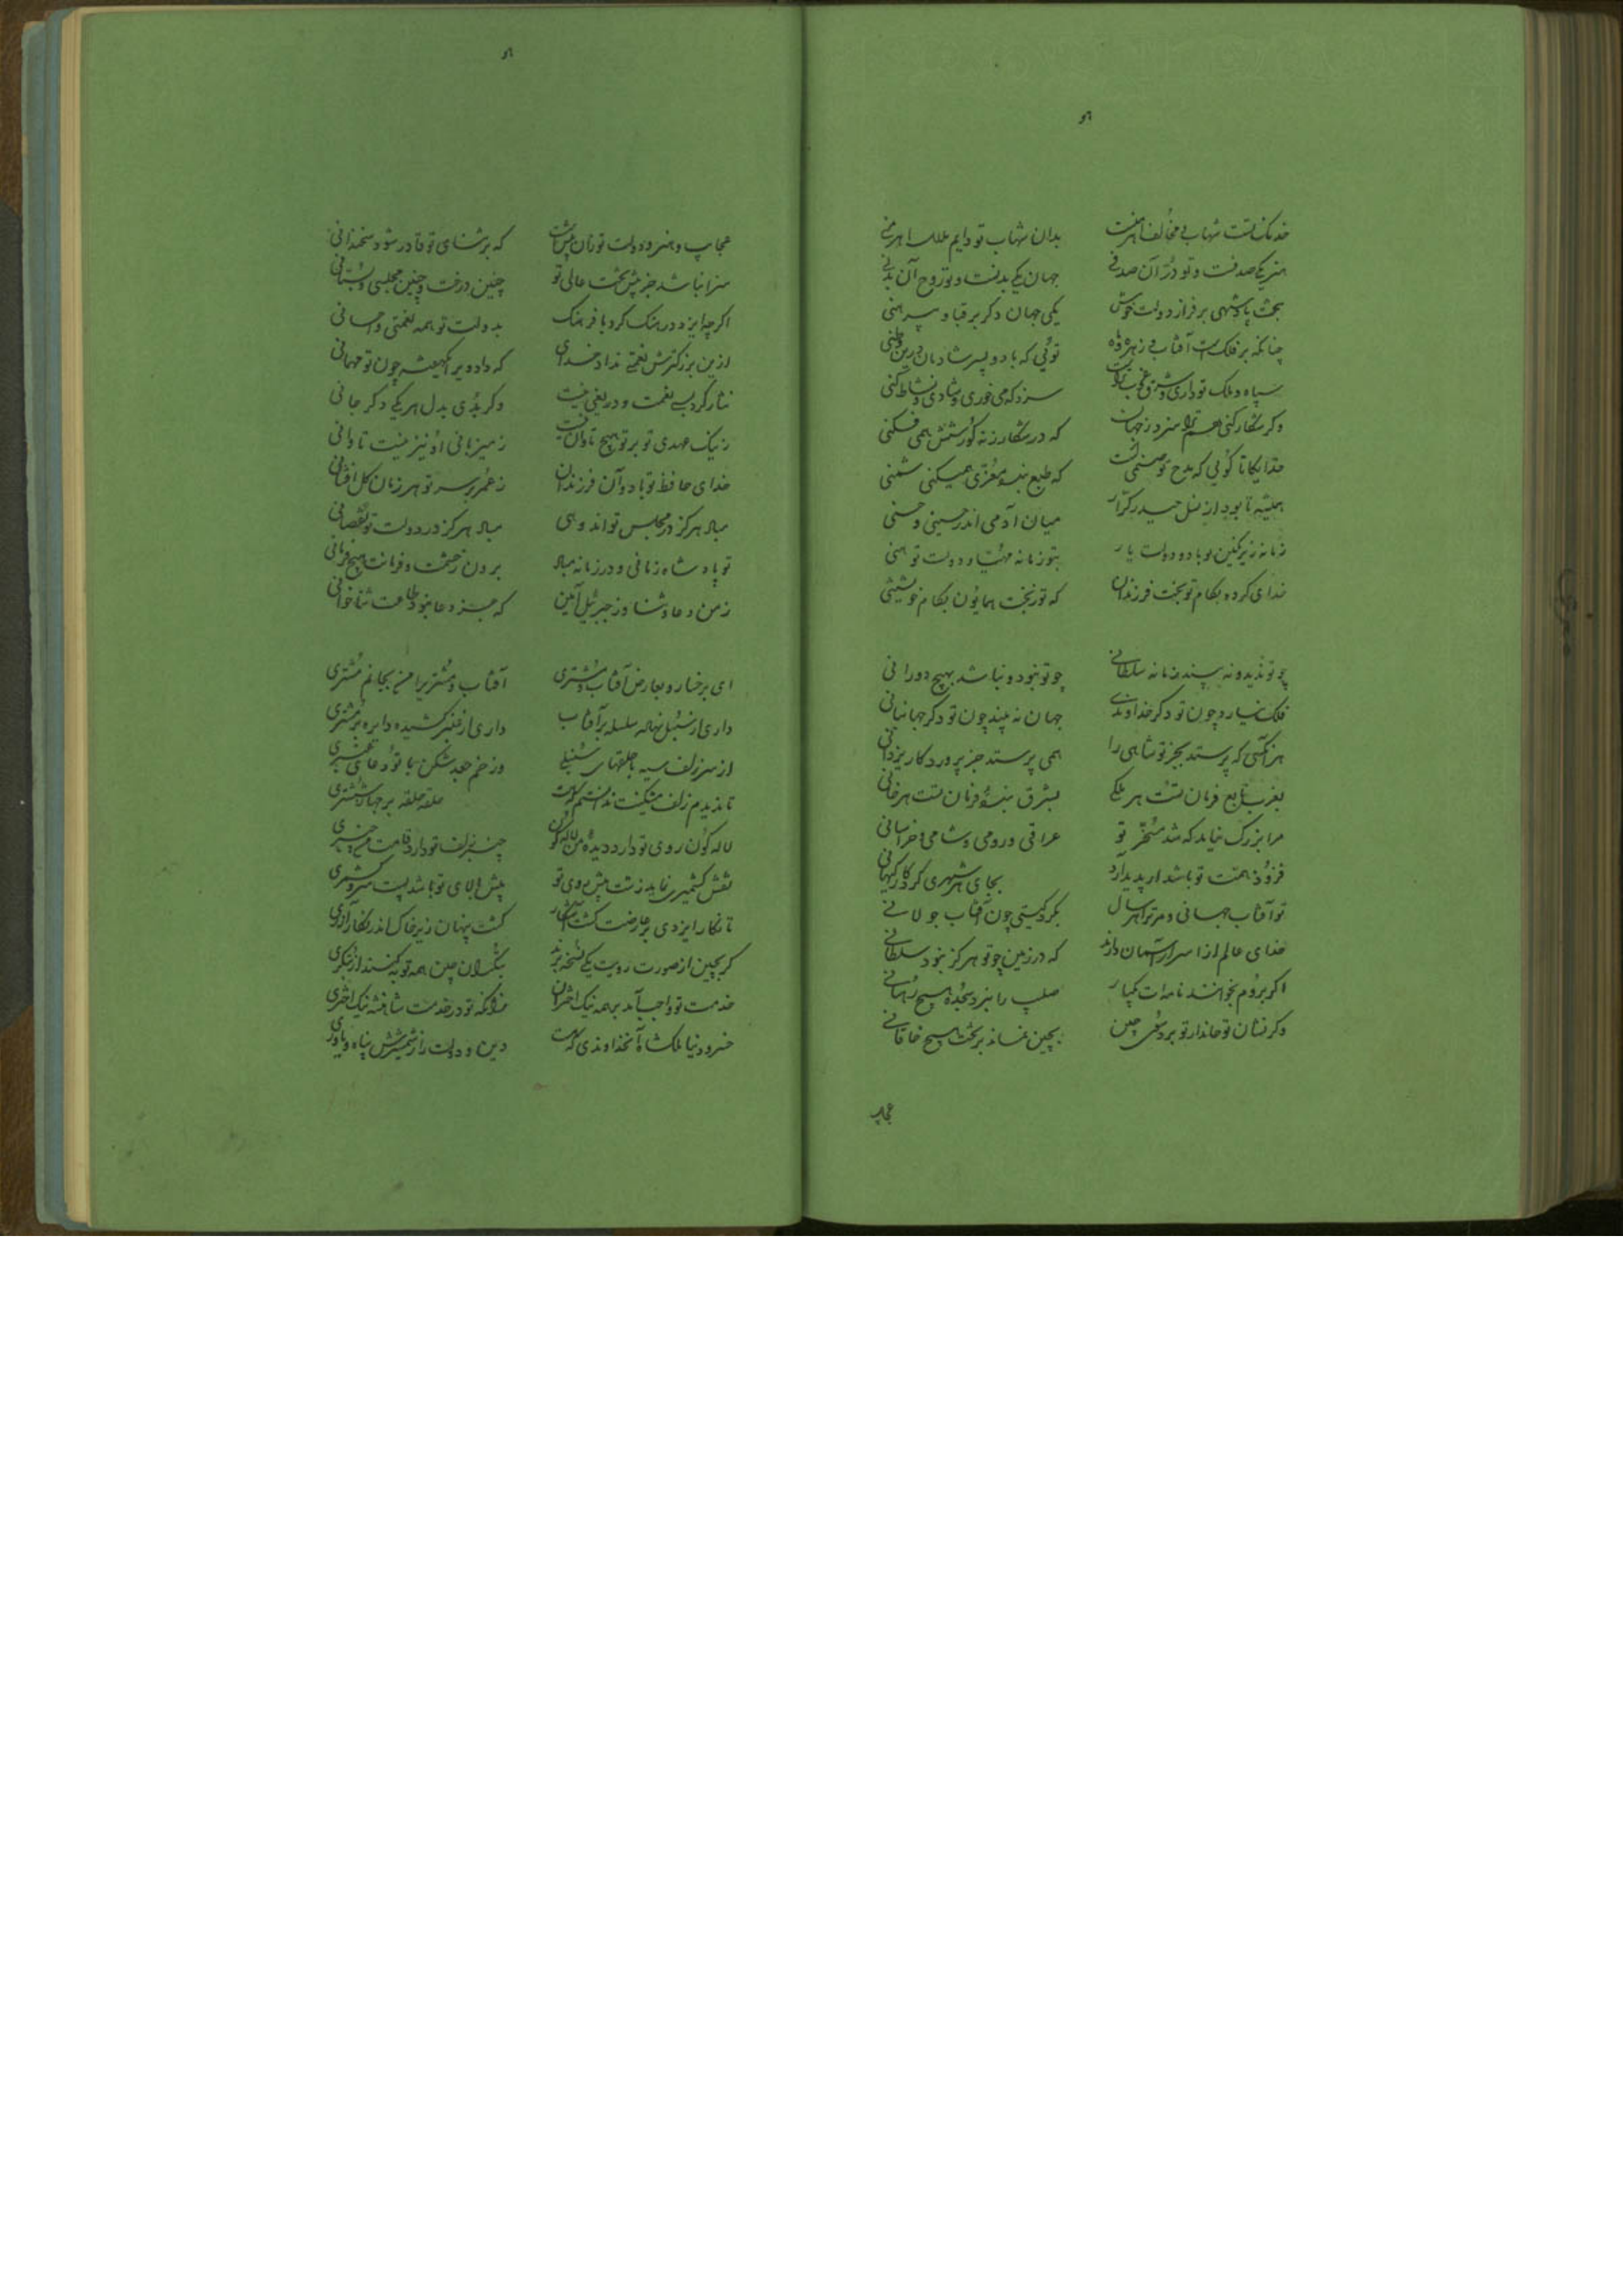 خدنک تست شهاب و مخالف اهرمنست بدان شهاب تو دایم هلاک اهرمنی
هنر یکی صدفست و تو درّ آن صدفی جهان یکی بدنست و تو روح آن بدنی
بتخت پادشهی بر فراز دولت خوش یکی جهان دکر بر قبا و پیرهنی
چنانکه بر فلکست آفتاب و زهره و ماه توئی که با دو پسر شادمان درین وطنی
سپاه و ملک تو داری سزد که می خوری و شادی و نشاط کنی
وکر شکار کنی هم ترا سزد ز جهان که در شکار زنه کورشش همی فکنی
خدایکانا کوئی که مدح تو صنمی است که طبع بنده معزّی همیکند شمنی
همیشه تا بود از نسل حیدر کرّار میان آدمی اندر حسینی و حسنی
زمانه زیر نکین تو باد و دولت یار بتو زمانه مهنّا و دولت تو هنی
خدای کرده بکام تو بخت فرزندان که تو ز بخت همایون بکام خویشتنی
چو تو ندید و نه بیند زمانه سلطانی چو تو نبود و نباشد بهیچ دورانی
فلک نیارد چون تو دکر خداوندی جهان نه بیند چون تو دکر جهانبانی
هر آنکسی که پرستد بجز تو شاهی را همی پرستد جز پروردکار یزدانی
بغرب تابع فرمان تست هر ملکی بشرق بنده فرمان تست هر خانی
مرا بزرک نیاید که شد مسخّر تو عراقی و رومی و شامی و خراسانی
فزون ز همت تو باشد ار پدید آرد بجای هر شهری کردکار کیهانی
تو آفتاب جهانی و مر ترا هر سال بکرد کیتی چون آفتاب جولانی
خدای عالم از اسرار آسمان داند که در زمین چو تو هرکز نبود سلطانی
اکر بروم بخوانند نامه‌ات یکبار صلیب را نبرد سجده هیچ رهبانی
وکر نشان تو جاندار تو برد سوی چین بچین نماند بر تخت هیچ خاقانی
عجایب
عجایب و هنر و دولت تو زان بیش است که بر ثنای تو قادر شود سخندانی
سزا نباشد جز پیش تخت عالی تو چنین درخت و چنین مجلسی و بستانی
اکرچه ایزد در هنک کرد با فرهنک بدولت تو همه نعمتی و احسانی
ازین بزرکترش نعمتی نداد خدای که داد ویرا یکهفته چون تو مهمانی
نثار کرد بسی نعمت و دریغی نیست وکر بدی بدل هر یکی دکر جانی
ز نیک عهدی تو بر تو هیچ تاوان نیست ز میزبانی او نیز نیست تاوانی
خدای حافظ تو باد و آن فرزندان ز عمر بر سر تو هر زمان کل افشانی
مباد هرکز در مجلس تو اندوهی مباد هرکز در دولت تو نقصانی
تو پادشاه زمانی و در زمانه مباد برون ز حشمت و فرمانت هیچ فرمانی
ز من دعا و ثنا و ز جبرئیل آمین که جز دعا نبود طاعت ثنا خوانی
ای برخسار و بعارض آفتاب و مشتری آفتاب و مشتریرا من بجانم مشتری
داری از سنبل نهاده سلسله بر آفتاب داری از عنبر کشیده دایره بر مشتری
از سر زلف سیه با حلقهای سنبلی وز خم جعد شکن با تودهای عنبری
تا ندیدم زلف مشکینت ندانستم که هست حلقه حلقه بر جهان ششتری
لاله کون روی تو دارد دیده من لاله کون چنبری زلف تو دارد قامت من چنبری
نقش کشمیری نماید زشت پیش روی تو پیش بالای تو باشد پست سرو کشمری
تا نکار ایزدی بر عارضت کشت آشکار کشت پنهان زیر خاک اندر نکار آزری
کر بچین از صورت رویت یکی نسخه برند بتکران چین همه توبه کنند از بتکری
خدمت تو واجب آمد بر همه نیک اختران زانکه تو در خدمت شاهنشه نیک اختری
خسرو دنیا ملکشاه آنخداوندی که هست دین و دولت را ز شمشیرش پناه و یاوری